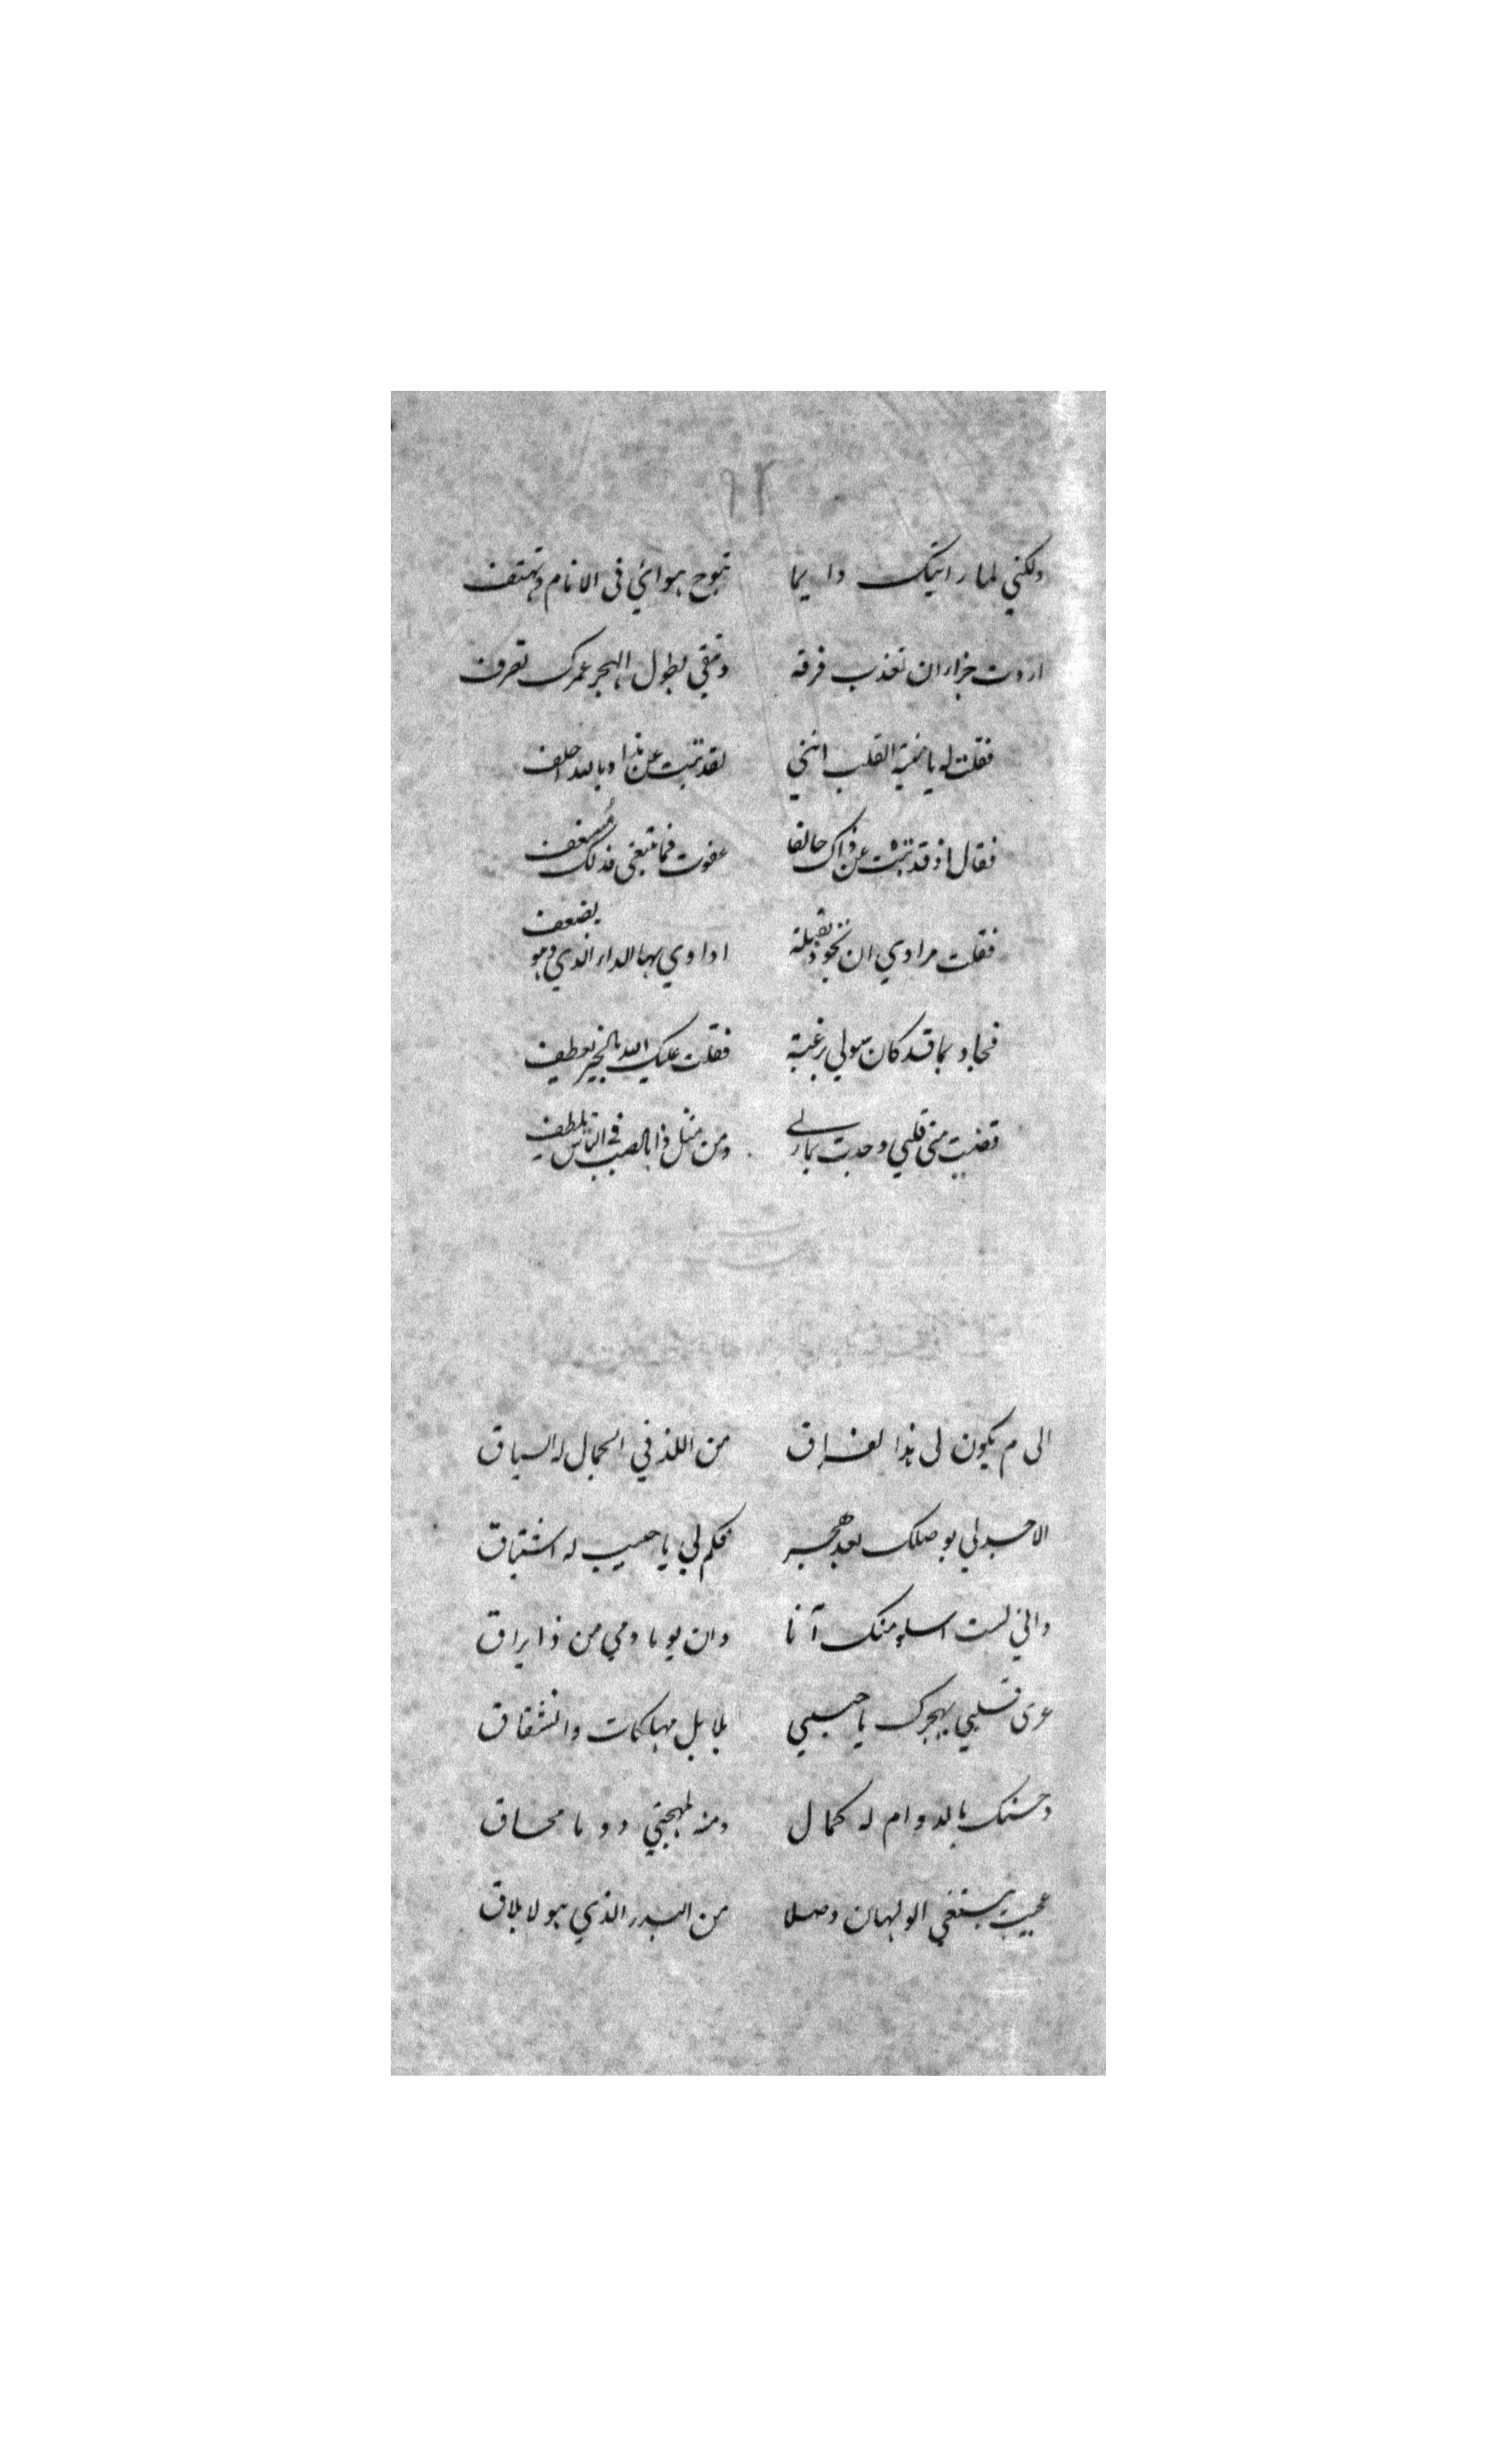 ٩٢
ولكني لما رايتك دايما تبوح بهوائي في الانام وتهتف
اردت جزاران تعذب فرقة وتبقي بطول الهجر عمرك تعرف
فقلت له يا منية القلب انني لقد تبت عن هذا وبالله احلف
فقال اذ قد تبت عن ذاك حالفا عفوت فما تبغي فذلك مُسعف
فقلت مرادي ان تجود بقبلة اداوي بها الداء الذي وهو يضعف
فجاد بما قد كان سولي برغبة فقلت عليك الله بالخير يعطف
قضيت مني قلبي وجدت بماربي ومن مثل ذا بالصب في الناس يلطف
الى م يكون لي هذا الفراق من اللذ في الجمال له السباق
الا جد لي بوصلك بعد هجر فكم لي يا حبيب له اشتياق
واني لست اسلو منك آنا وان يوما دمي من ذا يراق
عرى قلبي بهجرك يا حبيبي بلابل مهلكات وانشقاق
وحسنك بالدوام له كمال ومنه لمهجتي دوما محاق
عجيب يبتغي الولهان وصلا من البدر الذي هو لا يلاق